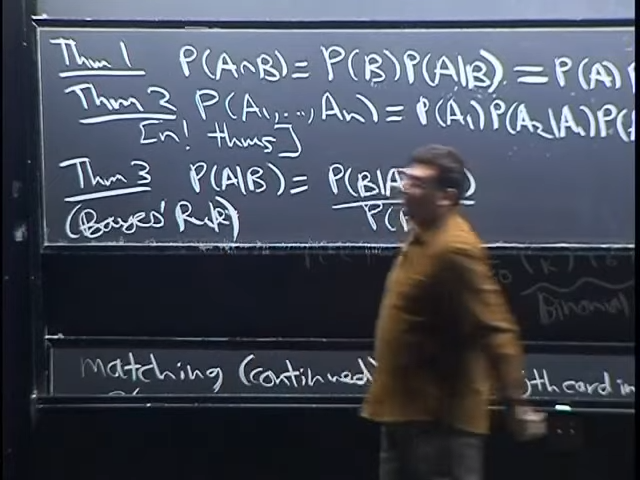 Thm 1 P(A∩B) = P(B)P(A|B) = P(A)
Thm 2 P(A₁,...,Aₙ) = P(A₁)P(A₂|A₁)P(
[n! thms]
Thm 3 P(A|B) = P(B|A )
(Bayes' Rule) P(
Binomial
matching (continued) jth card in